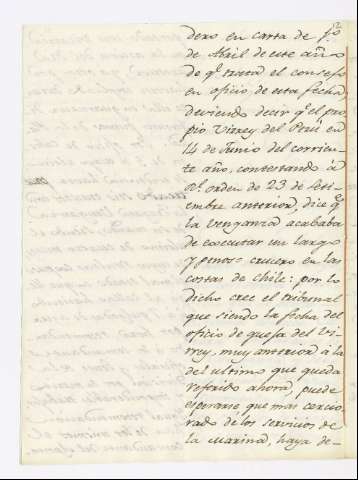 dero en carta de 1.º
de Abril de este año
de q.e trata el consejo
en oficio de esta fecha,
deviendo decir q.e el pro-
pio Virrey del Perú en
14 de Junio del corrien-
te año, contestando á
R.l orden de 23 de Seti-
embre anterior, dice q.e
la venganza acababa
de executar un largo
y penoso crucero en las
costas de Chile: por lo
dicho cree el tribunal
que siendo la fecha del
oficio de quejas del Vi-
rrey, muy anterior á la
del ultimo que queda
referido ahora, puede
esperarse que mas cercio-
rado de los servicios de
la Marina, haya de-